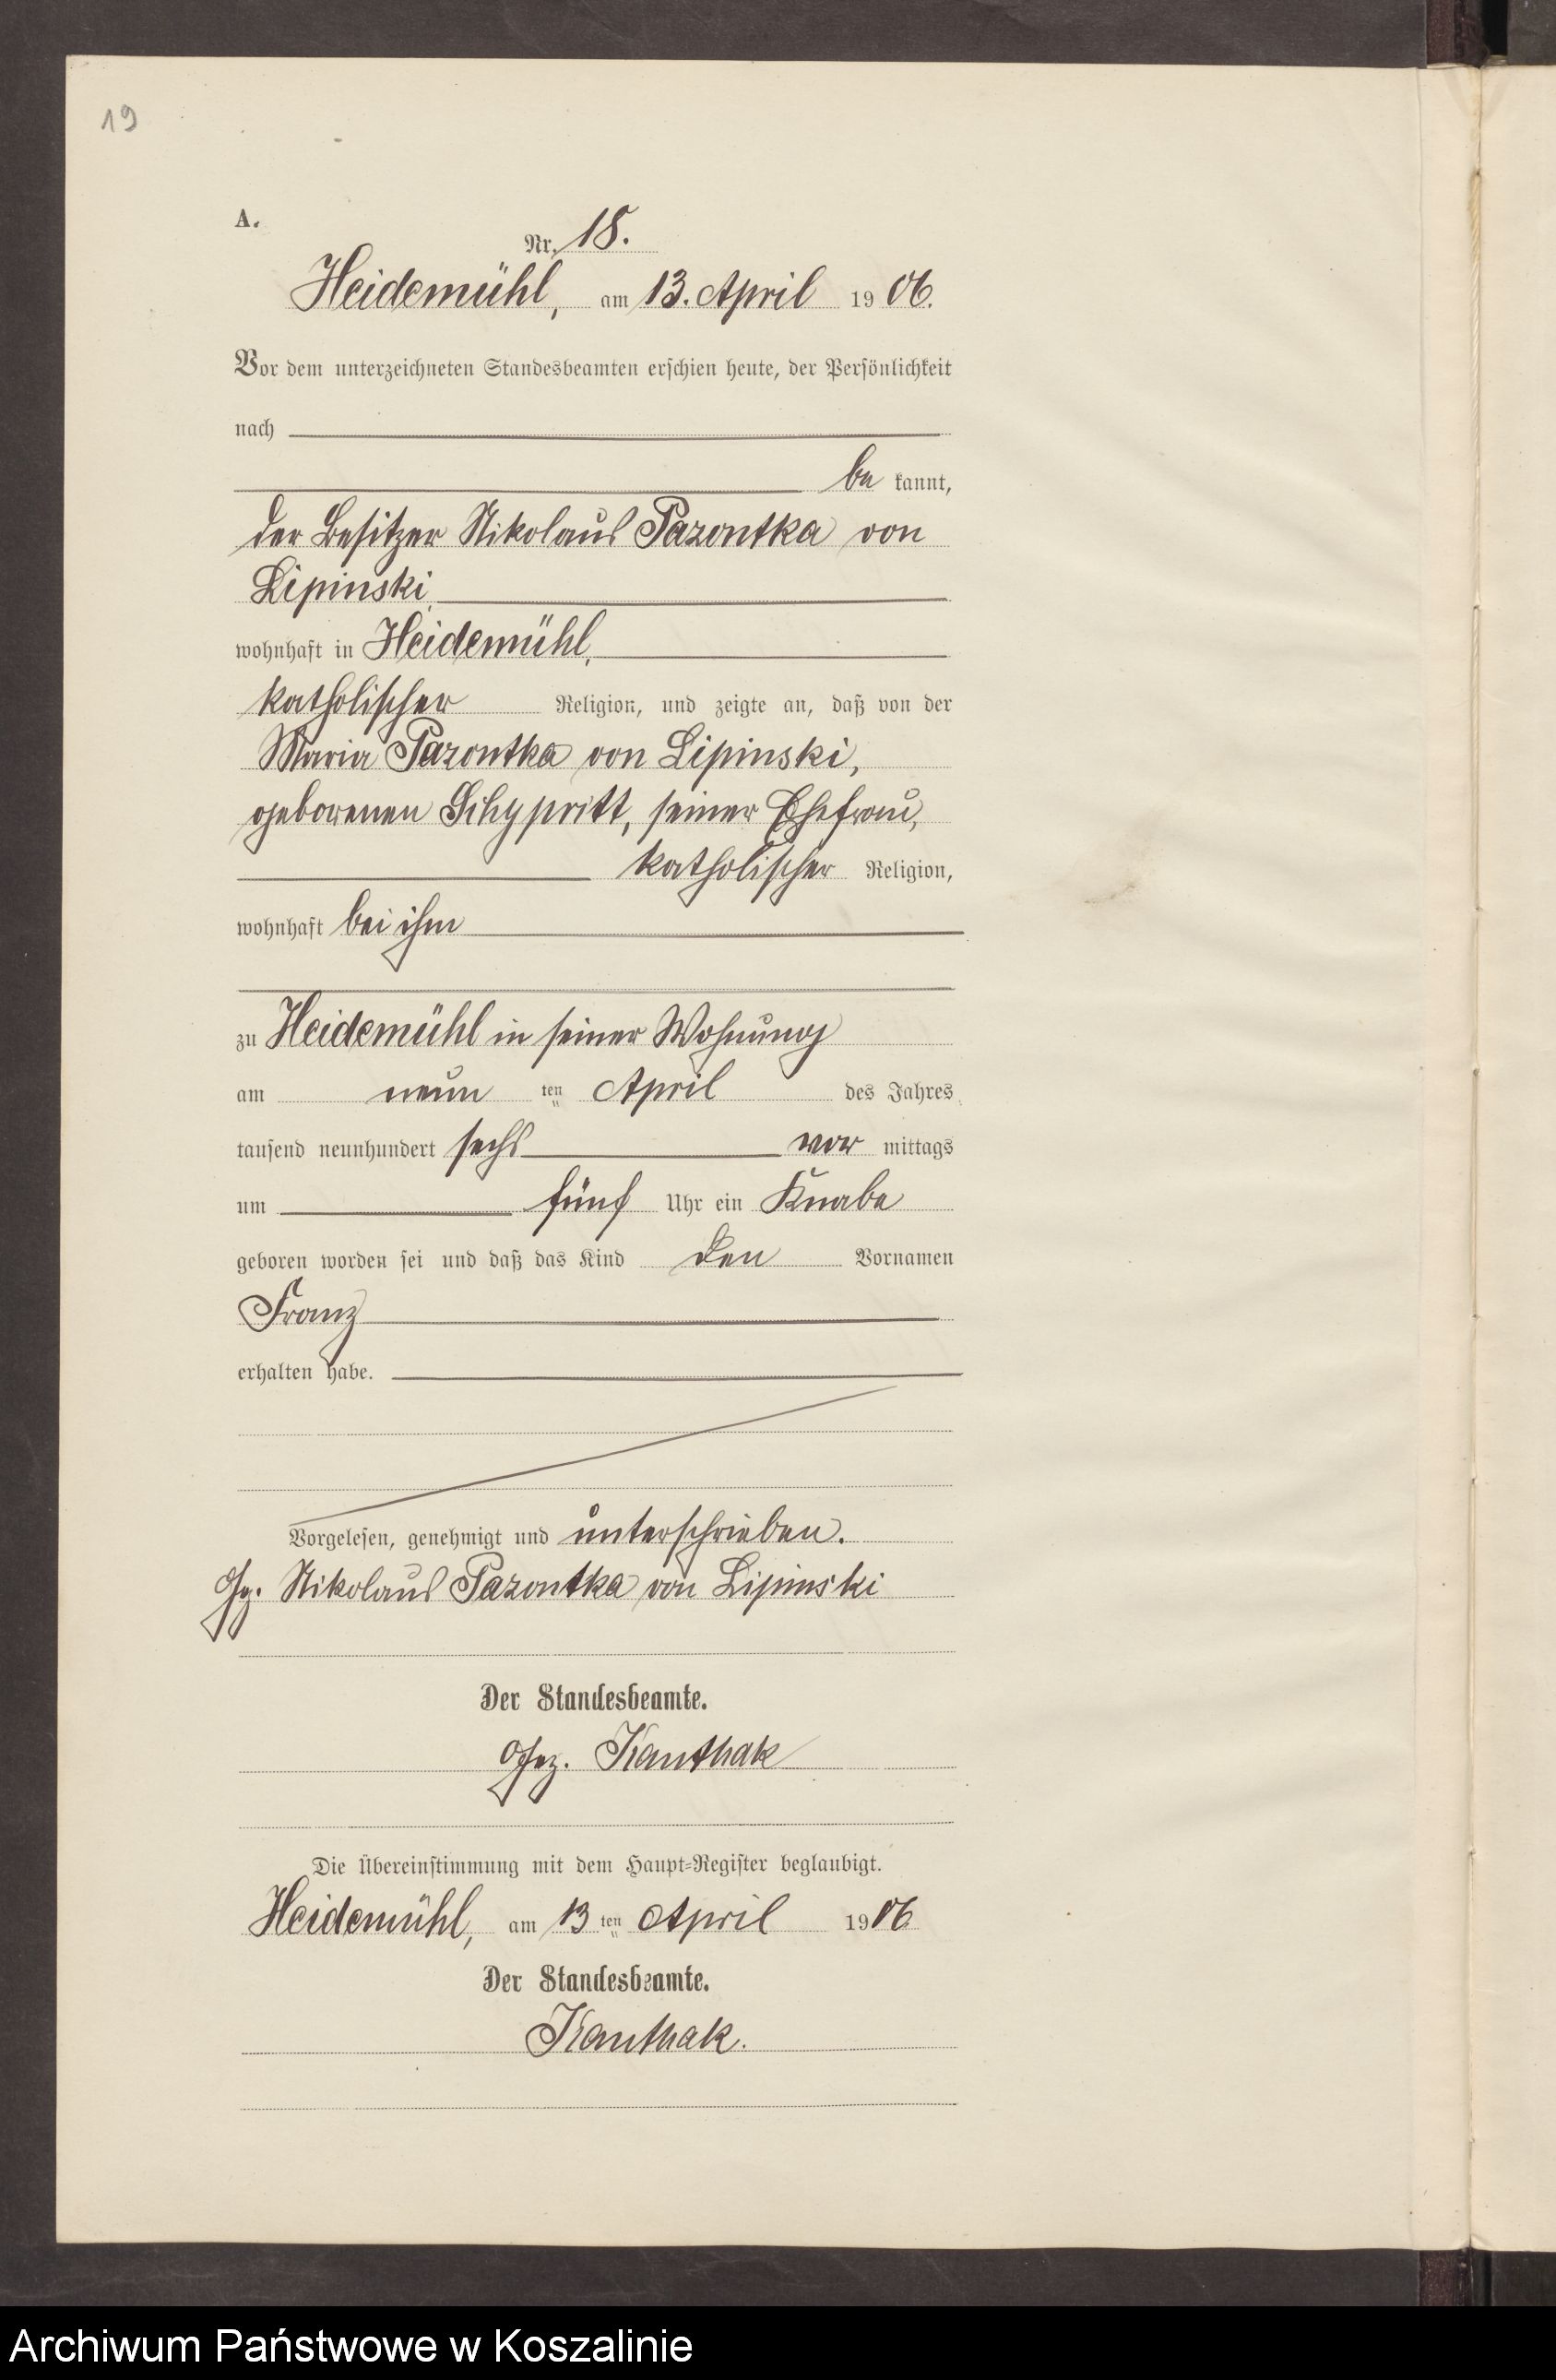 19
A.
Nr. 18.
Heidemühl, am 13. April 1906.
Vor dem unterzeichneten Standesbeamten erschien heute, der Persönlichkeit
nach
be kannt,
der Besitzer Nikolaus Pazontka von
Lipinski
wohnhaft in Heidemühl,
katholischer Religion, und zeigte an, daß von der
Maria Pazontka von Lipinski,
geborenen Schypritt, seiner Ehefrau,
katholischer Religion,
wohnhaft bei ihm
zu Heidemühl in seiner Wohnung
am neun ten April des Jahres
tausend neunhundert sechs vor mittags
um fünf Uhr ein Knabe
geboren worden sei und daß das Kind den Vornamen
Franz
erhalten habe.
Vorgelesen, genehmigt und unterschrieben.
Gz. Nikolaus Pazontka von Lipinski
Der Standesbeamte.
Gez. Kanthak
Die Übereinstimmung mit dem Haupt-Register beglaubigt.
Heidemühl, am 13 ten April 1906
Der Standesbeamte.
Kanthak.
Archiwum Państwowe w Koszalinie